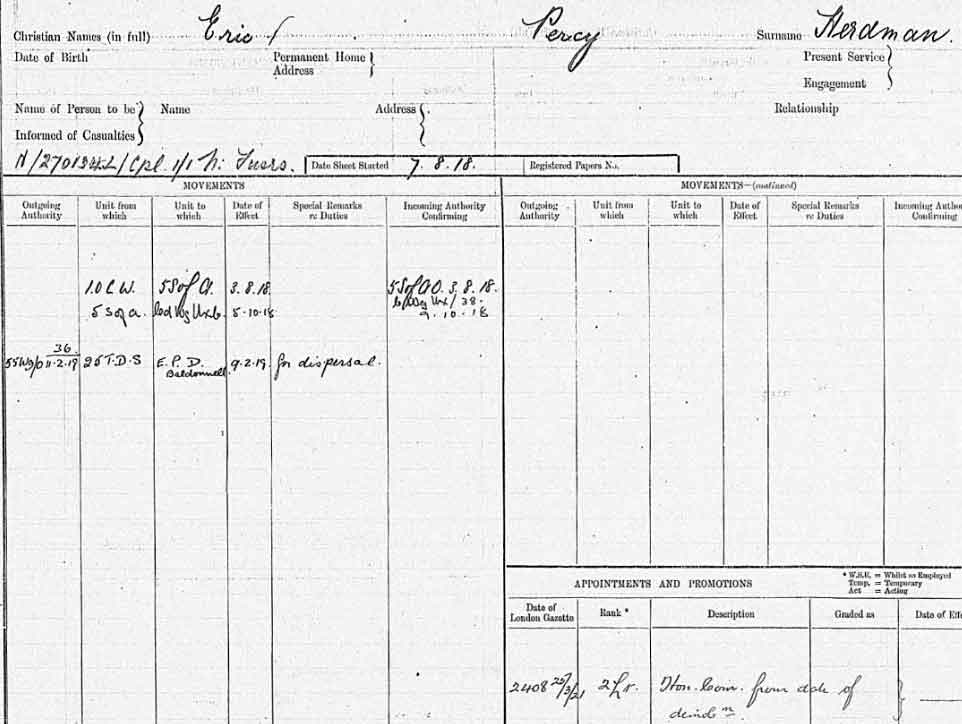 Christian Names (in full) Eric Percy Surname Herdman.
Date of Birth Permanent Home Address Present Service
Engagement
Name of Person to be Informed of Casualties Name Address Relationship
Cpl. 1/1 N. Fusrs. Date Sheet Started 7.8.18. Registered Papers No.
MOVEMENTS
Outgoing Authority Unit from which Unit to which Date of Effect Special Remarks re Duties Incoming Authority Confirming
1.O.C.W. 5 S of A. 3.8.18. 5 S of A O. 3.8.18.
5 S of A. 5.10.18 9.10.18
36
11.2.19 25 T.D.S E.P.D. Baldonnell 9.2.19 for dispersal.
MOVEMENTS—(continued)
Outgoing Authority Unit from which Unit to which Date of Effect Special Remarks re Duties Incoming Autho Confirming
* W.S.E. = Whilst so Employed
Temp. = Temporary
Act = Acting
APPOINTMENTS AND PROMOTIONS
Date of London Gazette Rank * Description Graded as Date of Effe
2408 25/3/21 2 Lt. Hon. Com. from date of